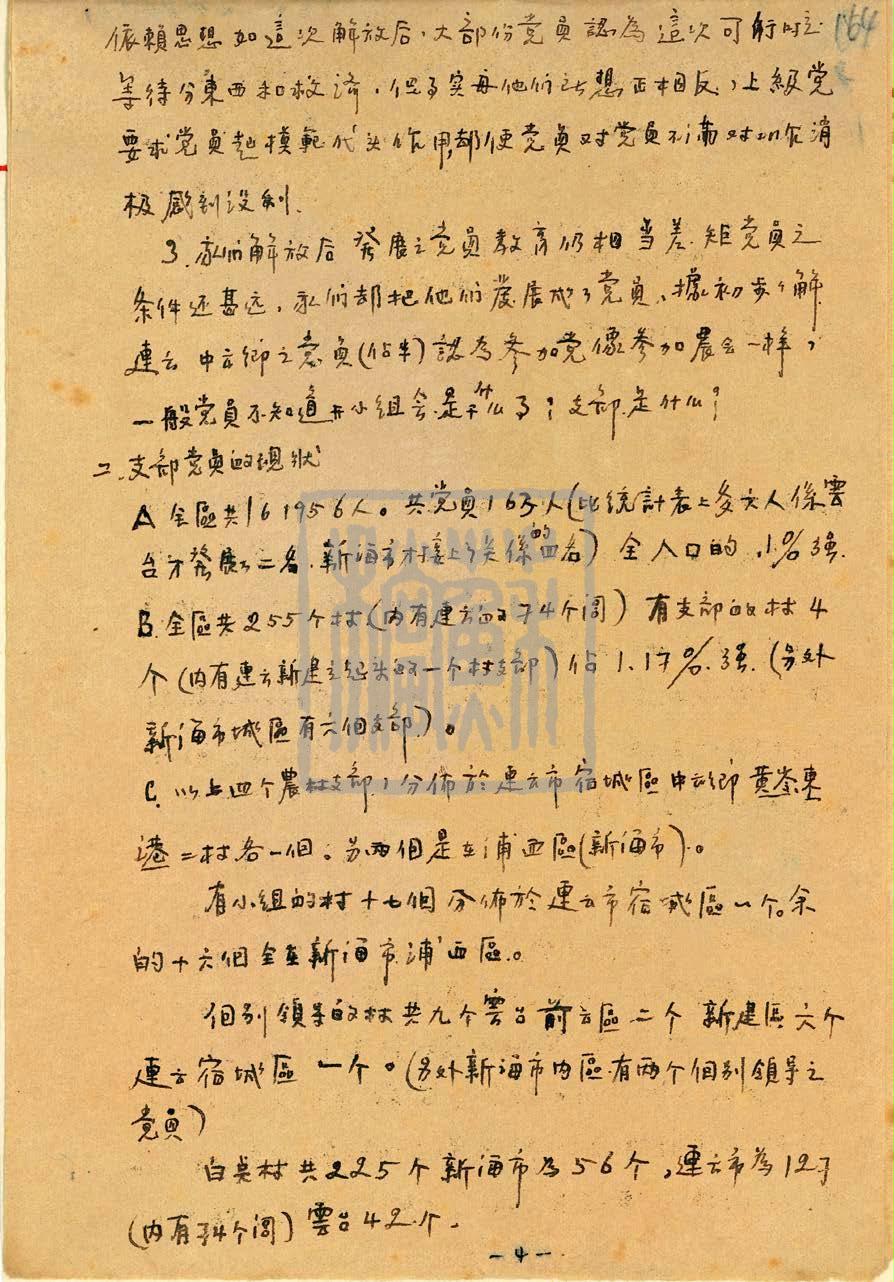 164
依賴思想如這次解放后,大部份党員認為這次可
等待分東西和救濟,但事实与他們正相反,上級党
要求党員起模範代头作用,却使党員对党員不滿对工作消
极感到没利.
3. 我們解放后発展之党員教育仍相当差.矩党員之
条件还甚远,我們却把他們発展成了党員,據初步了解
連云中云鄉之党員(佔半)認為参加党像参加農会一样,
一般党員不知道开小組会是干什么事?支部是什么?
二.支部党員的現狀
A 全區共161956人。共党員163人(比統計表上多六人係雲
台才発展了二名.新海市才接上了关係的四名)全人口的 .1%强.
B.全區共255个村(内有連云的74个閭)有支部的村4
个(内有連云新建立起来的一个村支部)佔1.17%.强.(另外
新海市城區有六個支部)。
C.以上四个農村支部,分佈於連云市宿城區中云鄉黄崇東
港二村各一個。另兩個是在浦西區(新海市)。
有小組的村十七個分佈於連云市宿城區一个。余
的十六個全在新海市浦西區。
個別領導的村共九个雲台前云區二个 新建區六个
連云宿城區一个。(另外新海市内區有两个個別領导之
党員)
白点村共225个新海市為56个,連云市為127
(内有74个閭)雲台42个.
-4-